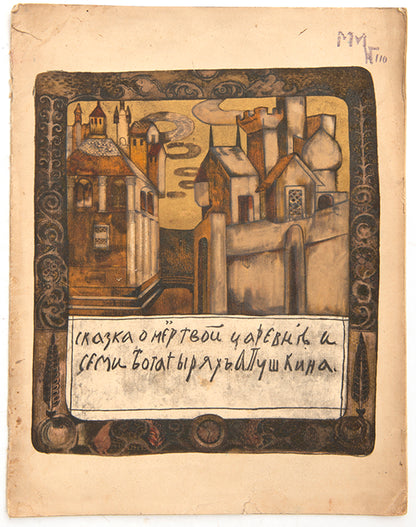 ММ
110
сказка о мёртвой царевнѣ и
семи богатыряхъ А Пушкина.